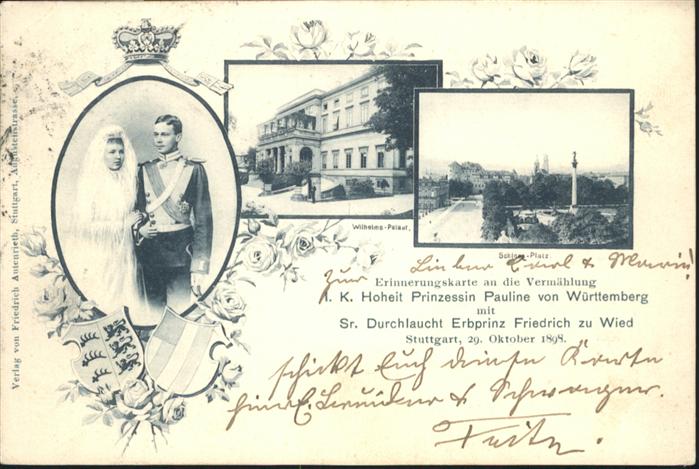 Verlag von Friedrich Autenrieth, Stuttgart, Augustenstrasse.
Wilhelms-Palast.
Schloss-Platz.
Zur Lieber Carl & Marie!
Erinnerungskarte an die Vermählung
I. K. Hoheit Prinzessin Pauline von Württemberg
mit
Sr. Durchlaucht Erbprinz Friedrich zu Wied
Stuttgart, 29. Oktober 1898.
schickt Euch diese Karte
& Schwager.
Fritz.